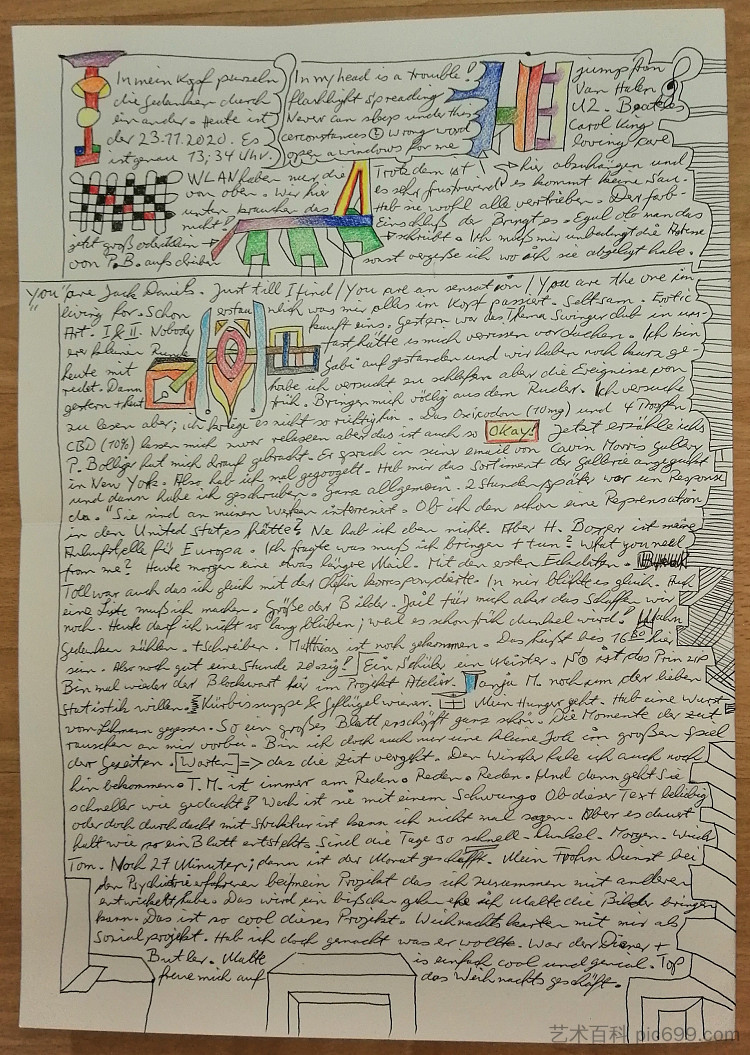 In mein Kopf purzeln
die Gedanken durch
einander. Heute ist
der 23.11.2020. Es
ist genau 13;34 Uhr.
In my head is a trouble!
flashlight spreading
Never can sleep under this
cerconstances wrong word
open a windows for me
jump from
Van Halen
U2. Beatles
Carol King
loving care
WLAN haben nur die
von oben. Wir hier
unten brauchen das
nicht?
jetzt groß oder klein
von P.B. aufschreiben
Trotzdem ist
es sehr frustrierend
Hab sie wohl alle vertrieben. Der Farb-
Einschluß der Bringt es. Egal ob man das
schreibt. Ich muß mir unbedingt die Adresse
sonst vergeße ich wo ich sie abgelegt habe.
hier abzuhängen und
es kommt keine Sau.
You are Jack Daniels. Just till I find / You are an sensation / You are the one im
living for. Schon erstaunlich was mir alles im Kopf passiert. Seltsam. Erotic
Art. I & II. Nobody
Gestern war das Thema Swingerclub in uns-
erer kleinen Runde
fast hätte ich mich
Ich bin
heute mit Gabi aufgestanden und wir haben noch kurz ge-
redet. Dann habe ich versucht zu schlafen aber die Ereignisse von
gestern + heut früh. Bringen mich völlig aus dem Ruder. Ich versuche
zu lesen aber; ich kriege es nicht so richtig hin. Das Oxicodon (10mg) und 4 Tropfen
CBD (10%) lassen mich zwar relaxen aber das ist auch so Okay! Jetzt erzähle ichs
P. Bolliger hat mich drauf gebracht. Er sprach in seine email von Cavin Morris Gallery
in New York. Also hab ich mal gegoogelt. Hab mir das Sortiment der Gallerie angeguckt
und dann habe ich geschrieben. Ganz allgemein. 2 Stunden später war ein Response
da. "Sie sind an meinen Werken interesiert. Ob ich den schon eine Representation
in den United States hätte? Ne hab ich eben nicht. Aber H. Boxer ist meine
Anlaufstelle für Europa. Ich fragte was muß ich bringen + tun? What you need
from me? Heute morgen eine etwas längre Mail. Mit den ersten Eckdaten.
Toll war auch das ich gleich mit der Chefin korrespondierte. In mir blüht es gleich. Auch
eine Liste muß ich machen. Größe der Bilder. Jail für mich aber das schaffen wir
noch. Heute darf ich nicht so lang bleiben; weil es schon früh dunkel wird!
Gedanken zählen. + Schreiben. Matthias ist noch gekommen. Das heißt bis 16 hier
sein. Also noch gut eine Stunde Ein Schüler ein Meister. No ist das Prinzip
Bin mal wieder der Blockwart hier im Projekt Atelier. Tanja M. noch um der lieben
Statistik willen. Kürbissuppe & Geflügelwiener. Mein Hunger geht. Hab eine Wurst
vom Lehmann gegessen. So ein großes Blatt erschöpft ganz schön. Die Momente der Zeit
rauschen an mir vorbei. Bin ich doch auch nur eine kleine Jolle im großen Spiel
der Gezeiten. Warten => das die Zeit vergeht. Den Winter habe ich auch noch
hin bekommen. T.M. ist immer am Reden. Reden. Reden. Und dann geht Sie
schneller wie gedacht! Weck ist sie mit einem Schwung. Ob dieser Text beliebig
oder doch durchdacht mit Struktur ist kann ich nicht mal sagen. Aber es dauert
halt wie so ein Blatt entsteht. Sind die Tage so schnell. Dunkel. Morgen.
Tom. Noch 27 Minuten; dann ist der Monat geschafft. Mein Frohn Dienst bei
den Psychiatrieerfahrenen bei mein Projekt das ich zusammen mit anderen
entwickelt habe. Das wird ein bißchen gehn ehe ich Malte die Bilder bringen
kann. Das ist so cool dieses Projekt. Weihnachtskarten mit mir als
Sozialprojekt. Hab ich doch gemacht was er wollte. War der Diener +
Butler. Malte is einfach cool und genial. Top
freue mich auf das Weihnachtsgeschäft.
艺术百科 pic699.com